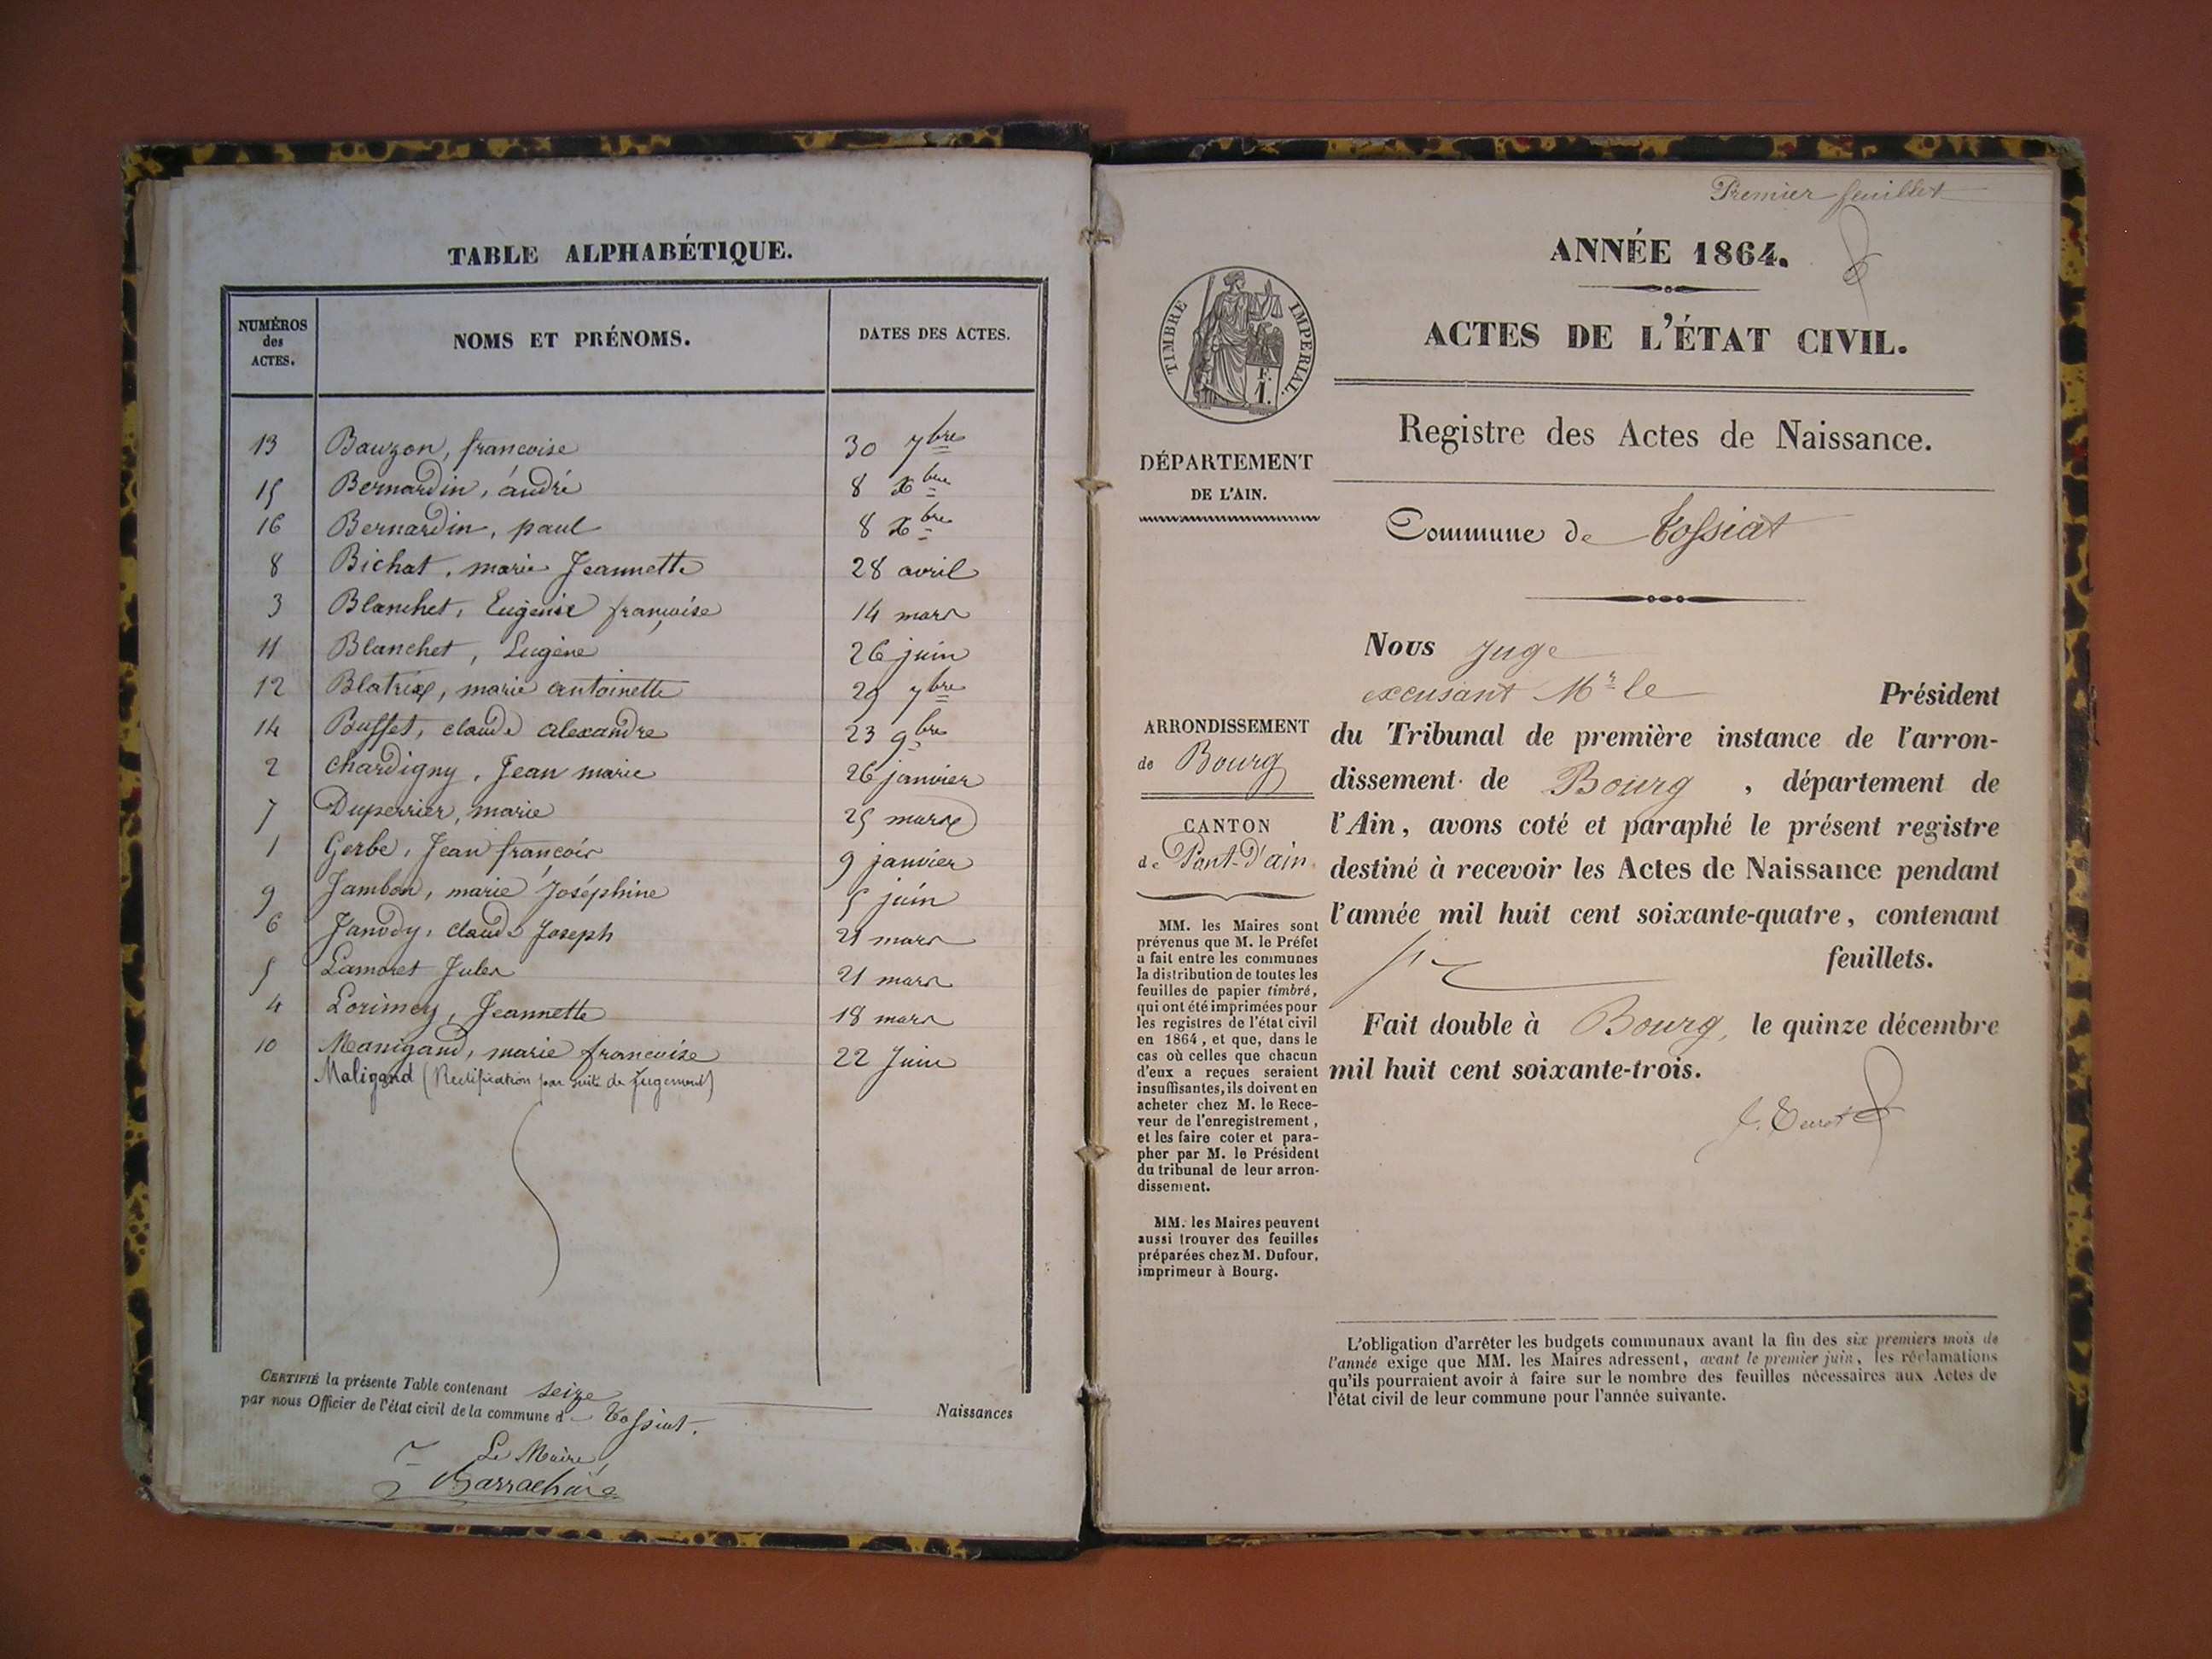 TABLE ALPHABÉTIQUE.
NUMÉROS
des
ACTES.
NOMS ET PRÉNOMS.
DATES DES ACTES.
13 Bauzon, francoise 30 7bre
15 Bernardin, andré 8 Xbre
16 Bernardin, paul 8 Xbre
8 Bichat, marie Jeannette 28 avril
3 Blanchet, Eugénie françoise 14 mars
11 Blanchet, Eugène 26 juin
12 Blatrix, marie antoinette 29 7bre
14 Buffet, claude alexandre 23 9bre
2 Chardigny, Jean marie 26 janvier
7 Duperrier, marie 25 mars
1 Gerbe, Jean françois 9 janvier
9 Jambon, marie Joséphine 5 juin
6 Janody, claude Joseph 21 mars
5 Lamoret Jules 21 mars
4 Lorimey, Jeannette 18 mars
10 Manigand, marie francoise 22 Juin
Maligand (Rectification par suite de Jugement)
CERTIFIÉ la présente Table contenant seize Naissances
par nous Officier de l'état civil de la commune d Tossiat.
Le Maire,
Premier feuillet
ANNÉE 1864.
ACTES DE L'ÉTAT CIVIL.
TIMBRE IMPERIAL.
F.
1.
Registre des Actes de Naissance.
DÉPARTEMENT
DE L'AIN.
Commune de Tossiat
Nous Juge
excusant Mr le Président
du Tribunal de première instance de l'arron-
dissement de Bourg, département de
l'Ain, avons coté et paraphé le présent registre
destiné à recevoir les Actes de Naissance pendant
l'année mil huit cent soixante-quatre, contenant
six feuillets.
Fait double à Bourg, le quinze décembre
mil huit cent soixante-trois.
ARRONDISSEMENT
de Bourg
CANTON
de Pont-d'ain
MM. les Maires sont
prévenus que M. le Préfet
a fait entre les communes
la distribution de toutes les
feuilles de papier timbré,
qui ont été imprimées pour
les registres de l'état civil
en 1864, et que, dans le
cas où celles que chacun
d'eux a reçues seraient
insuffisantes, ils doivent en
acheter chez M. le Rece-
veur de l'enregistrement,
et les faire coter et para-
pher par M. le Président
du tribunal de leur arron-
dissement.
MM. les Maires peuvent
aussi trouver des feuilles
préparées chez M. Dufour,
imprimeur à Bourg.
L'obligation d'arrêter les budgets communaux avant la fin des six premiers mois de
l'année exige que MM. les Maires adressent, avant le premier juin, les réclamations
qu'ils pourraient avoir à faire sur le nombre des feuilles nécessaires aux Actes de
l'état civil de leur commune pour l'année suivante.